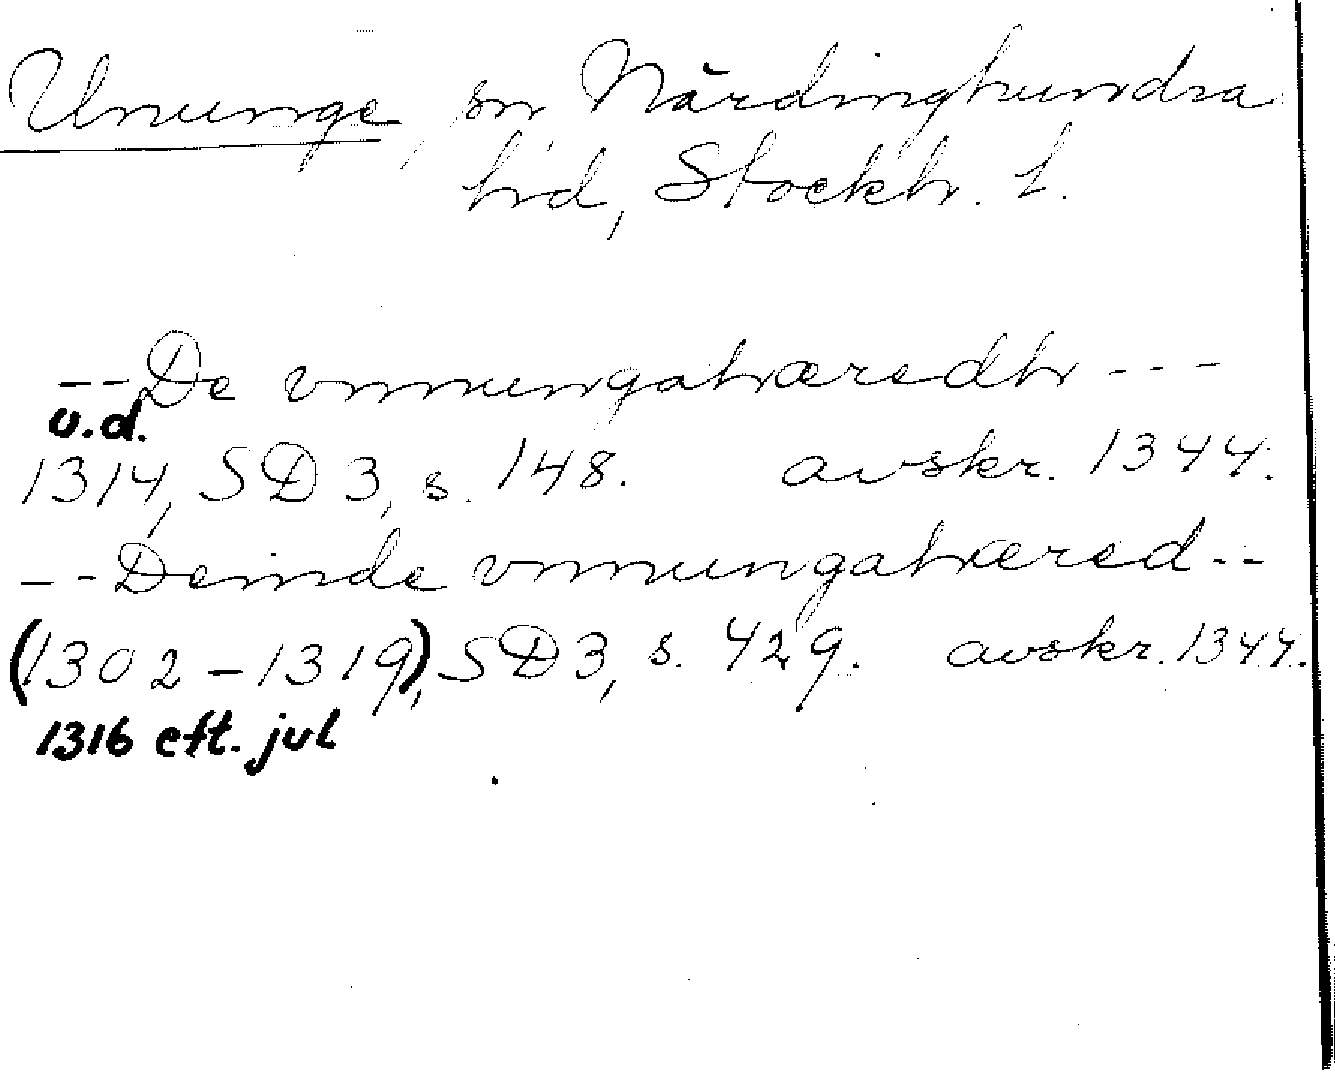 Ununge, sn, Närdinghundra
hd, Stockh. l.
-- De vnnungahæredh ---
u.d.
1314, SD 3, s. 148. avskr. 1344.
-- Deinde vnnungahæred --
(1302-1319), SD 3, s. 429. avskr. 1344.
1316 eft. jul